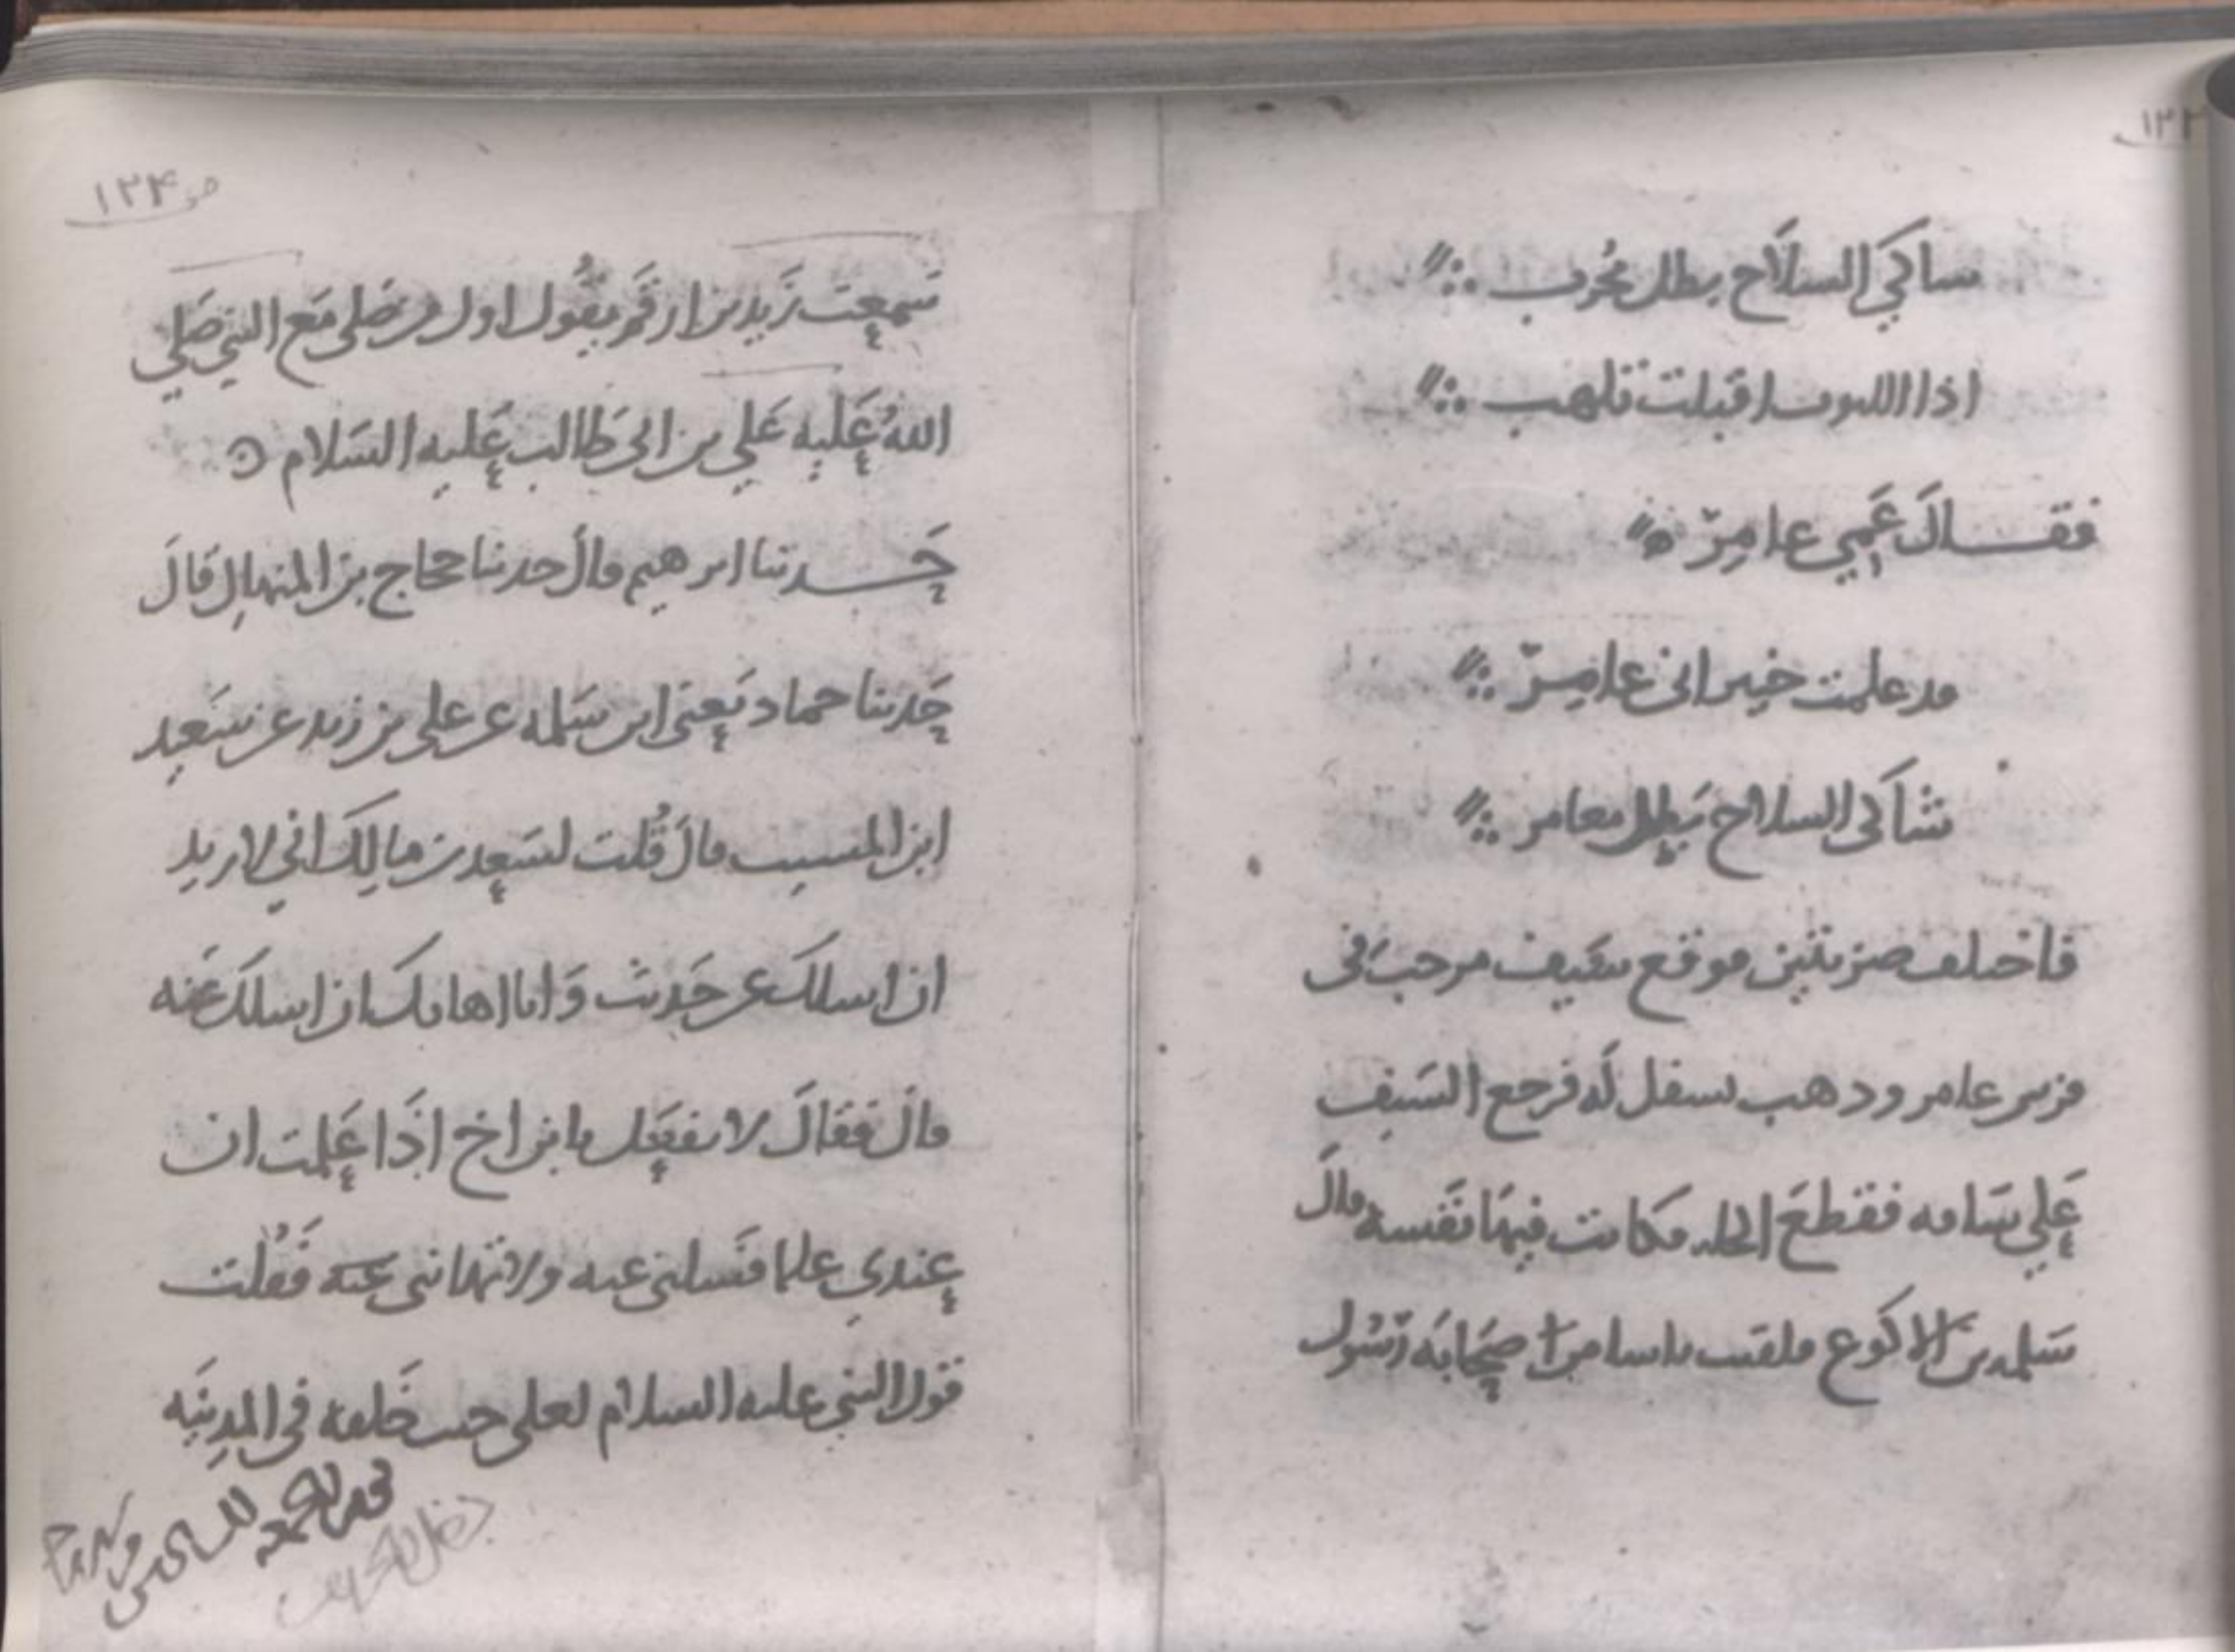 شاكي السلاح بطل مجرب
اذا الليوث اقبلت تلهب
فقال عمي عامر
قد علمت خيبر اني عامر
شاكي السلاح بطل مغامر
فاختلف ضربتين فوقع سيف مرحب في
ترس عامر وذهب يسفل له فرجع السيف
علي ساقه فقطع اكحله فكانت فيها نفسه قال
سلمه بن الاكوع فلقيت ناسا من اصحابه رسول
١٢٤
سمعت زيد بن ارقم يقول اول من صلى مع النبي صلي
الله عليه علي بن ابي طالب عليه السلام
حدثنا ابرهيم قال حدثنا حجاج بن المنهال قال
حدثنا حماد يعني ابن سلمه عن علي بن زيد عن سعيد
ابن المسيب قال قلت لسعد بن مالك اني لاريد
ان اسلك عن حديث وانا اهابك ان اسلك عنه
قال فقال لا تفعل يا بن اخ اذا علمت ان
عندي علما فسلني عنه ولا تهابني عنه فقلت
قول النبي عليه السلام لعلي حين خلفه في المدينه